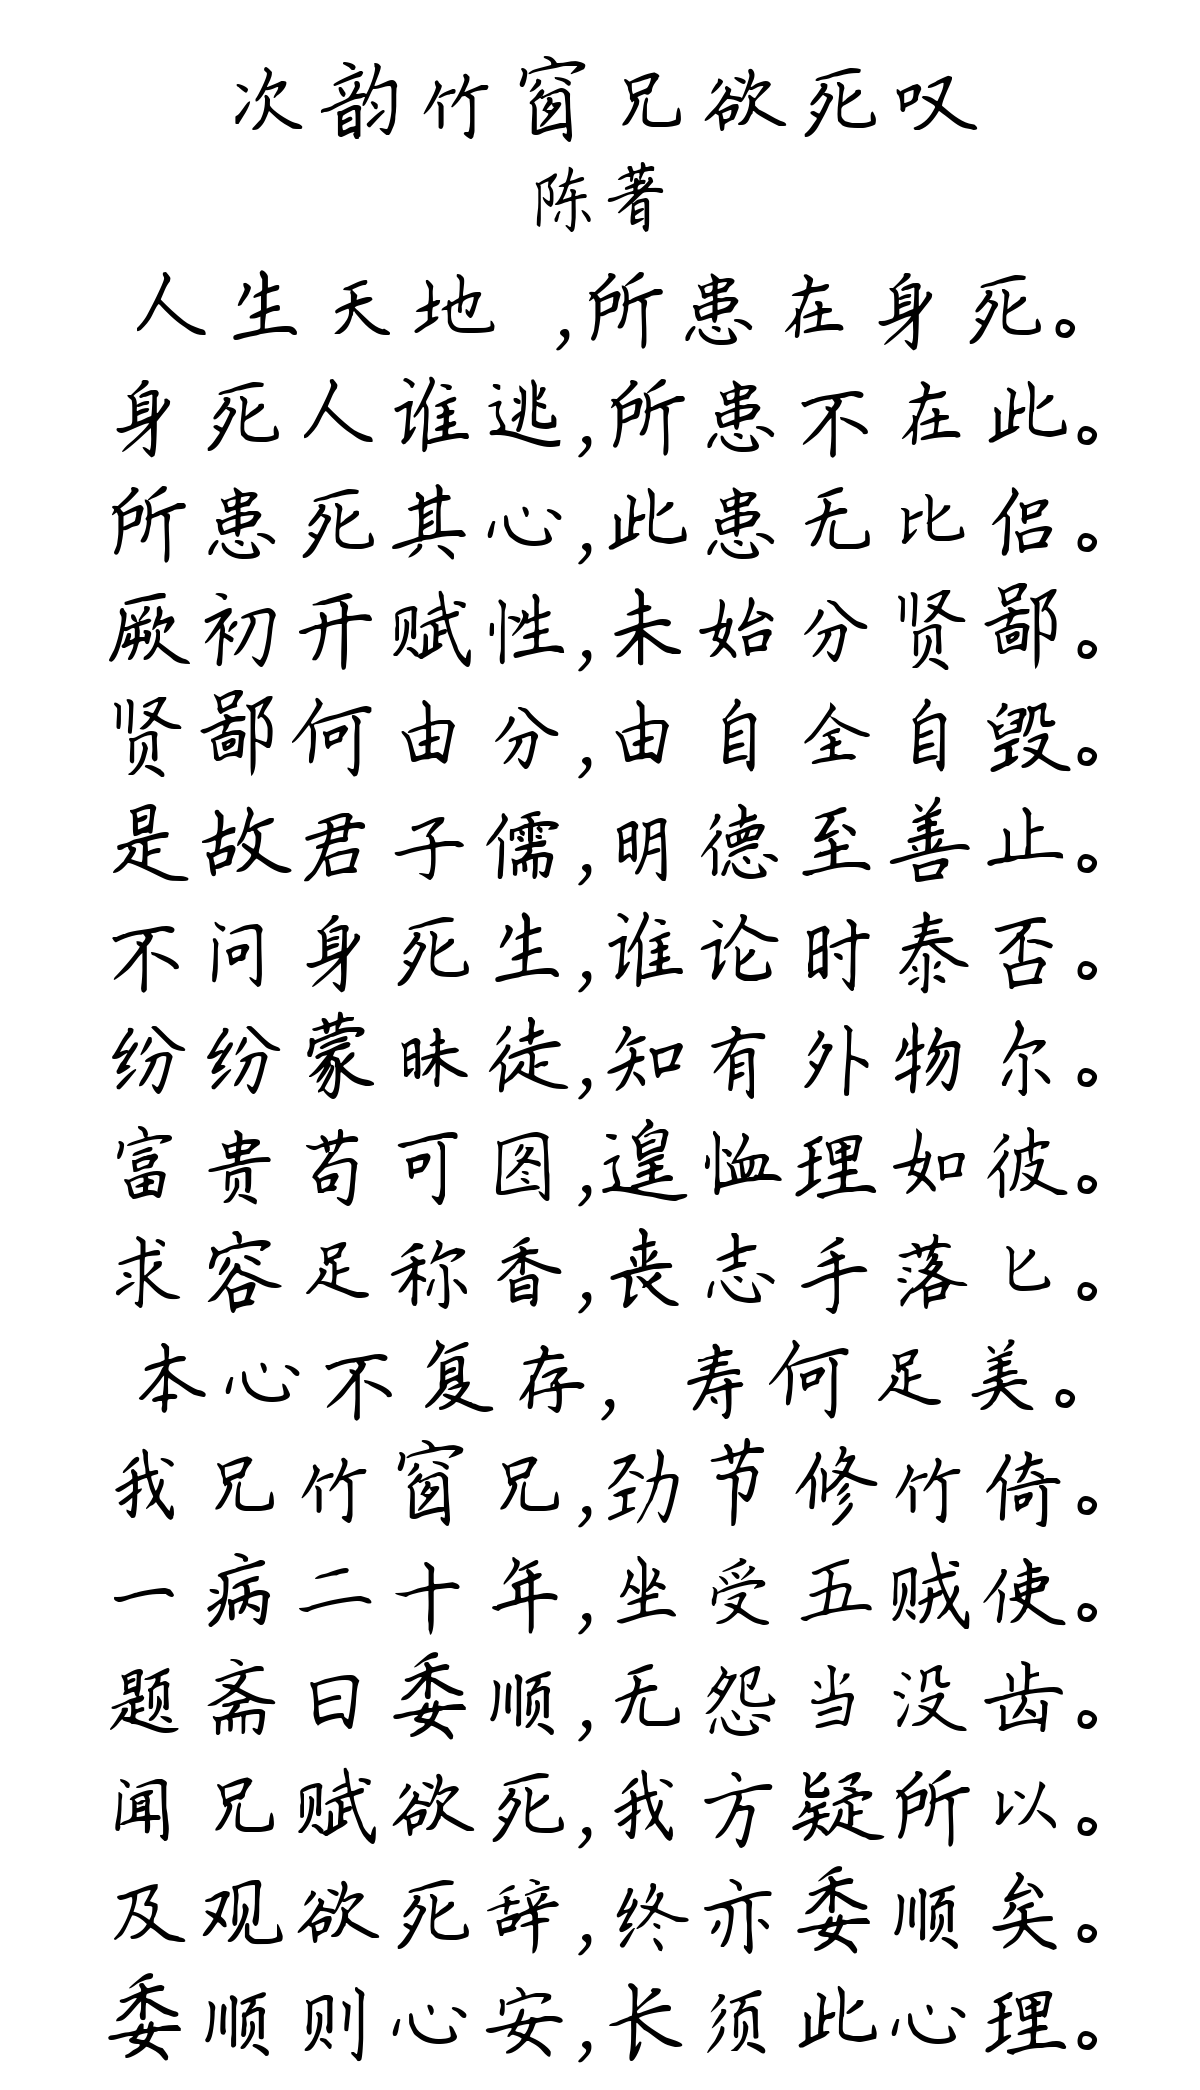 次韵竹窗兄欲死叹
陈著
人生天地 ,所患在身死。
身死人谁逃,所患不在此。
所患死其心,此患无比侣。
厥初开赋性,未始分贤鄙。
贤鄙何由分,由自全自毁。
是故君子儒,明德至善止。
不问身死生,谁论时泰否。
纷纷蒙昧徒,知有外物尔。
富贵苟可图,遑恤理如彼。
求容足称香,丧志手落匕。
本心不复存, 寿何足美。
我兄竹窗兄,劲节修竹倚。
一病二十年,坐受五贼使。
题斋曰委顺,无怨当没齿。
闻兄赋欲死,我方疑所以。
及观欲死辞,终亦委顺矣。
委顺则心安,长须此心理。